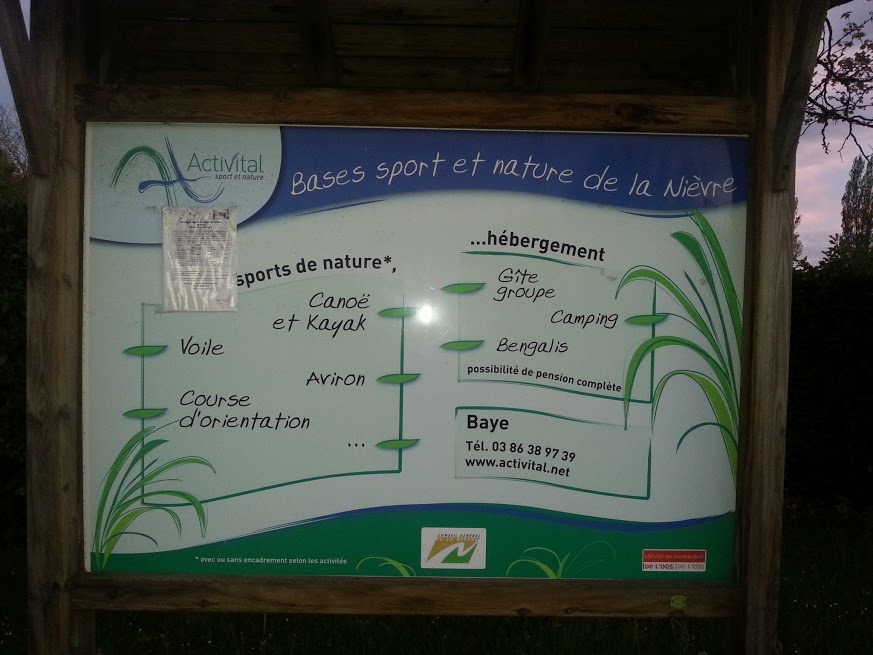 Activital
sport et nature
Bases sport et nature de la Nièvre
sports de nature*,
Canoë
et Kayak
Voile
Aviron
Course
d'orientation
...
...hébergement
Gîte
groupe
Camping
Bengalis
possibilité de pension complète
Baye
Tél. 03 86 38 97 39
www.activital.net
* avec ou sans encadrement selon les activités
CONSEIL GÉNÉRAL